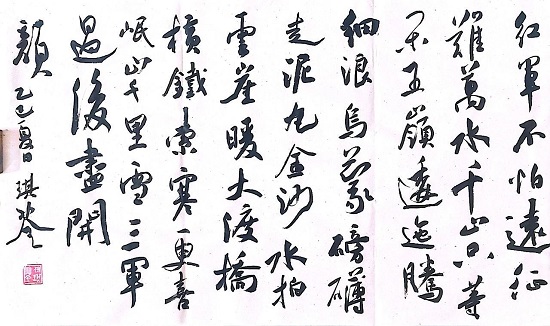 紅軍不怕遠征
難萬水千山只等
閑五嶺逶迤騰
細浪烏蒙磅礴
走泥丸金沙水拍
雲崖暖大渡橋
橫鐵索寒更喜
岷山千里雪三軍
過後盡開
顏 乙巳夏日 琪